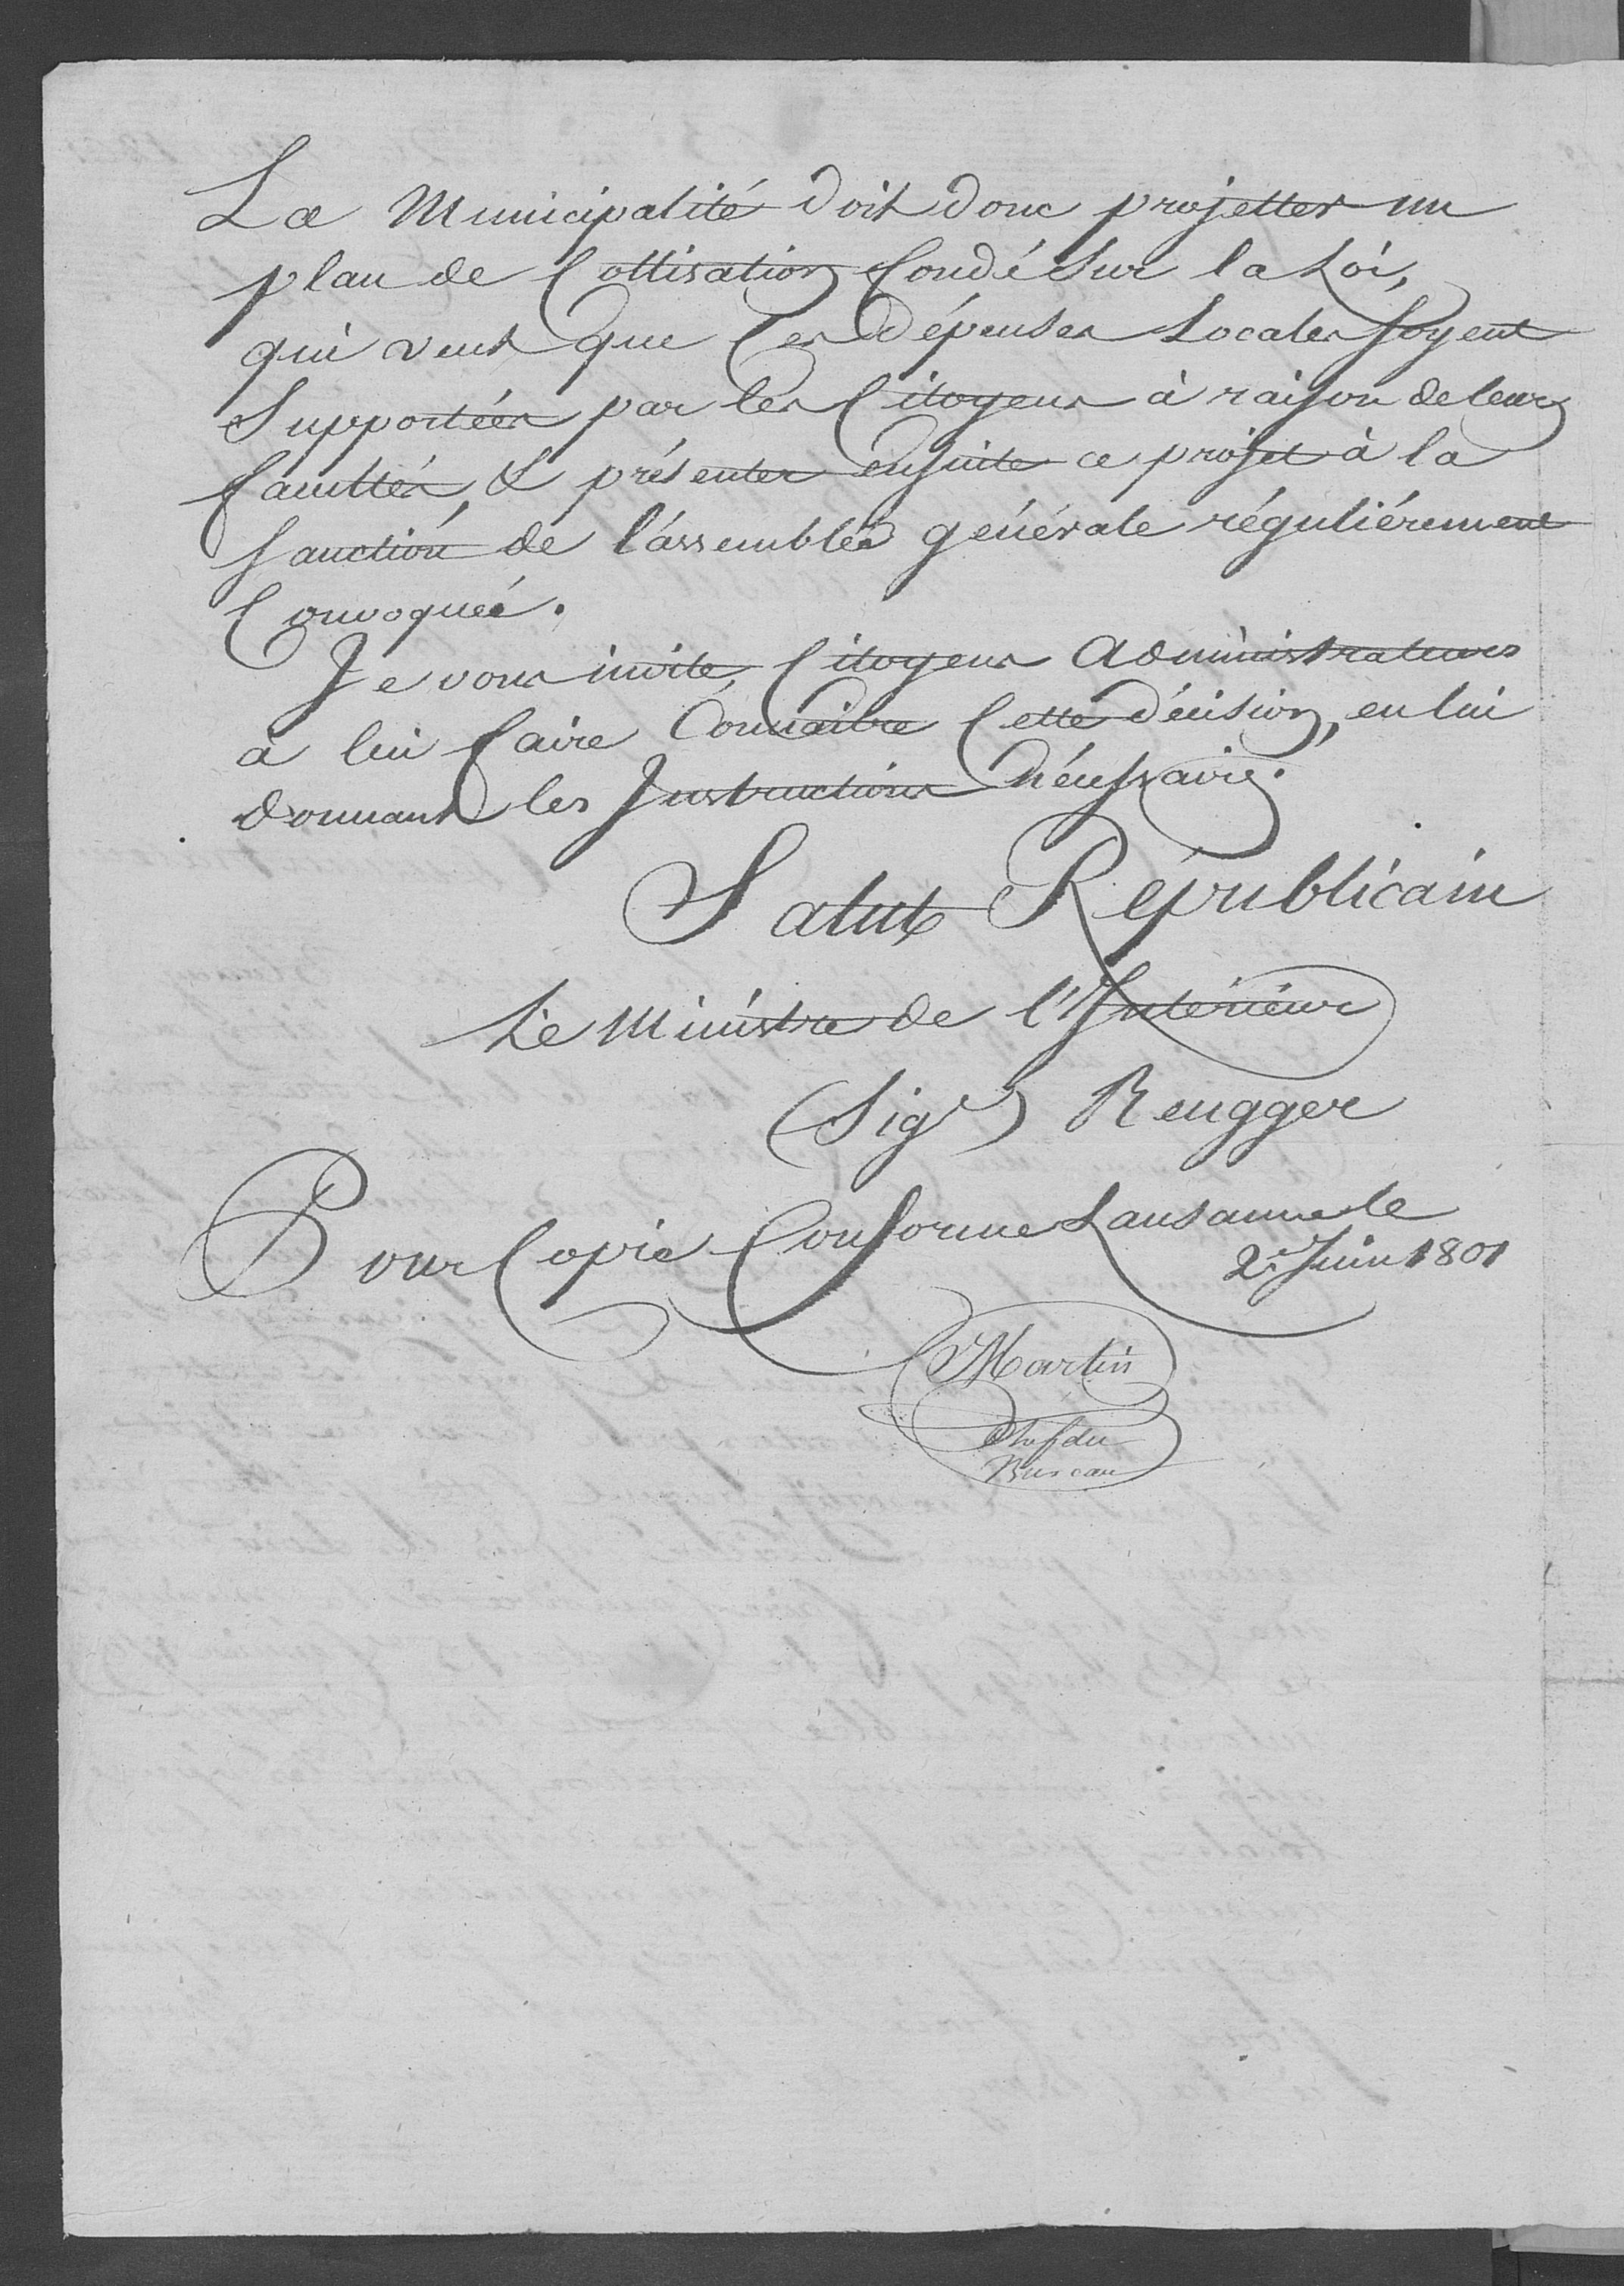 La Municipalité doit donc projetter un
plan de Cottisation fondé sur la Loi,
qui veut que les dépenses Locales soyent
Supportées par les Citoyens à raison de leurs
facultés, & présenter ensuite ce projet à la
sanction de l'assemblée générale réguliérement
Convoquée.
Je vous invite, Citoyens Administrateurs
à lui faire Connaitre Cette décision, en lui
donnant les Instructions Nécessaires.
Salut Républicain
Le Ministre de l'Intérieur
(Sigé) Rengger
Pour Copie Conforme Lausanne le
2e Juin 1801
Martin
Chef du
Bureau